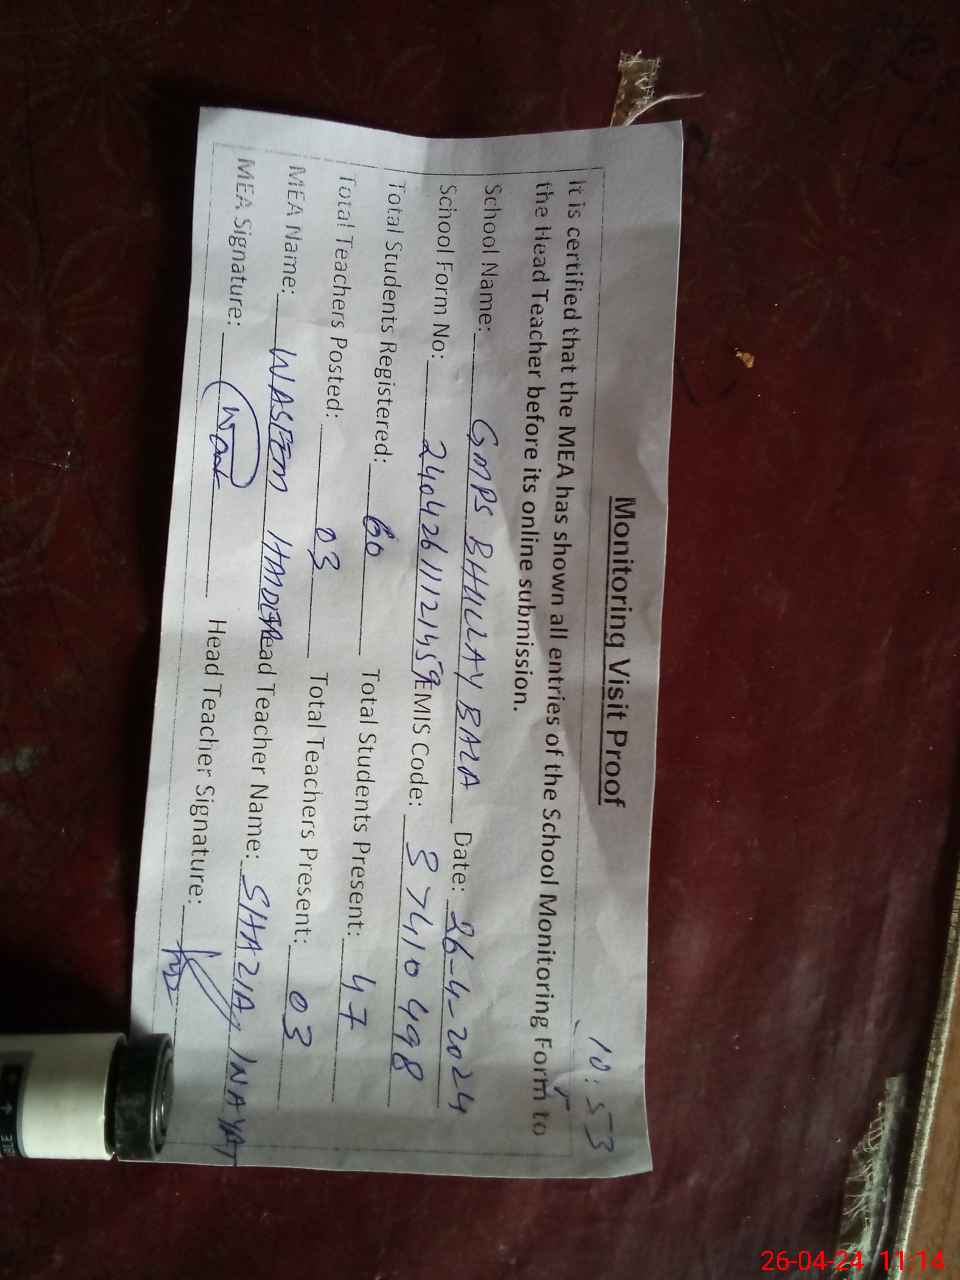 10:53
Monitoring Visit Proof
It is certified that the MEA has shown all entries of the School Monitoring Form to
the Head Teacher before its online submission.
School Name: GMPS BHULLAY BALA Date: 26-4-2024
School Form No: 24042611121459 EMIS Code: 37410498
Total Students Registered: 60 Total Students Present: 47
Total Teachers Posted: 03 Total Teachers Present: 03
MEA Name: WASEEM HAIDER Head Teacher Name: SHAZIA INAYAT
MEA Signature: Head Teacher Signature:
26-04-24 11:14